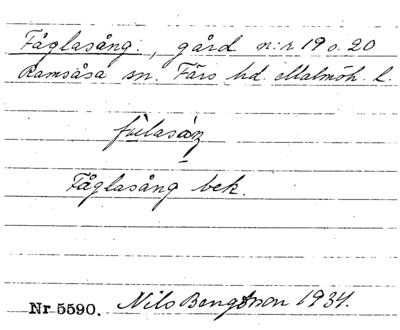 Fåglasång., gård n:r 19 o. 20
Ramsåsa sn. Färs hd Malmöh. l.
Fåglasång bek.
Nr 5590. Nils Bengtsson 1934.